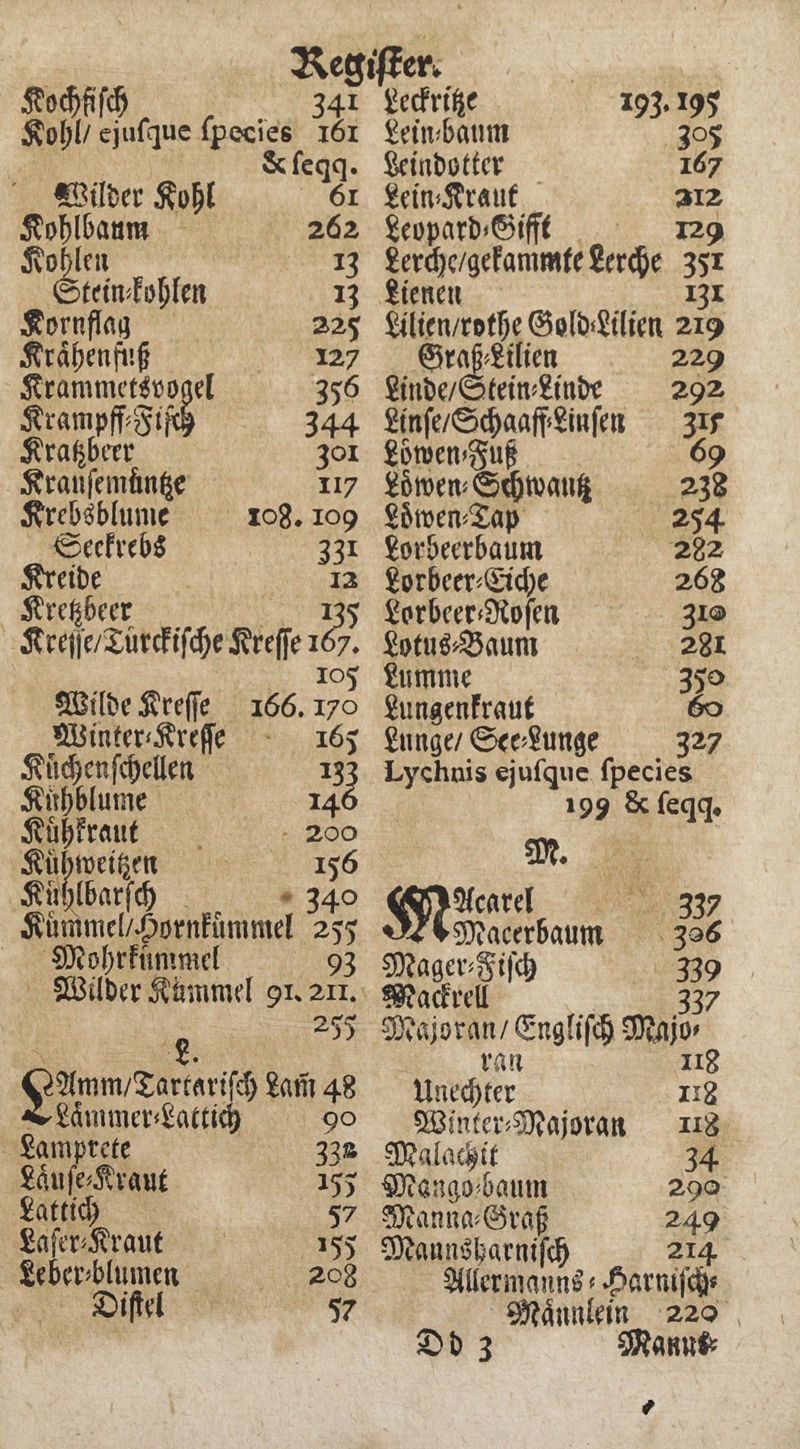 Regiſter.
Kochfiſch 341
Kohl/ ejuſque ſpecies 161
& ſeqq.
Wilder Kohl 61
Kohlbaum 262
Kohlen 13
Stein-kohlen 13
Kornflag 225
Krähenfuß 127
Krammetsvogel 356
Krampff-Fiſch 344
Kratzbeer 301
Krauſemüntze 117
Krebsblume 108. 109
Seekrebs 331
Kreide 12
Kretzbeer 135
Kreſſe/Türckiſche Kreſſe 167.
105
Wilde Kreſſe 166. 170
Winter-Kreſſe 165
Küchenſchellen 133
Kühblume 146
Kühkraut 200
Kühweitzen 156
Kühlbarſch 340
Kümmel/Hornkümmel 255
Mohrkümmel 93
Wilder Kümmel 91. 211.
255
L.
LAmm/Tartariſch Lam̃ 48
Lämmer-Lattich 90
Lamprete 332
Läuſe-Kraut 155
Lattich 57
Laſer-Kraut 155
Leber-blumen 208
Diſtel 57
Leckritze 193. 195
Lein-baum 305
Leindotter 167
Lein-Kraut 212
Leopard-Gifft 129
Lerche/gekammte Lerche 351
Lienen 131
Lilien/rothe Gold-Lilien 219
Graß-Lilien 229
Linde/Stein-Linde 292
Linſe/Schaaff-Linſen 315
Löwen-Fuß 69
Löwen-Schwantz 238
Löwen-Tap 254
Lorbeerbaum 282
Lorbeer-Eiche 268
Lorbeer-Roſen 310
Lotus-Baum 281
Lumme 350
Lungenkraut 60
Lunge/ See-Lunge 327
Lychnis ejuſque ſpecies
199 & ſeqq.
M.
MAcarel 337
Macerbaum 306
Mager-Fiſch 339
Mackrell 337
Majoran/ Engliſch Majo-
ran 118
Unechter 118
Winter-Majoran 118
Malachit 34
Mango-baum 290
Manna-Graß 249
Mannsharniſch 214
Allermanns-Harniſch-
Männlein 220
Dd 3 Manns-